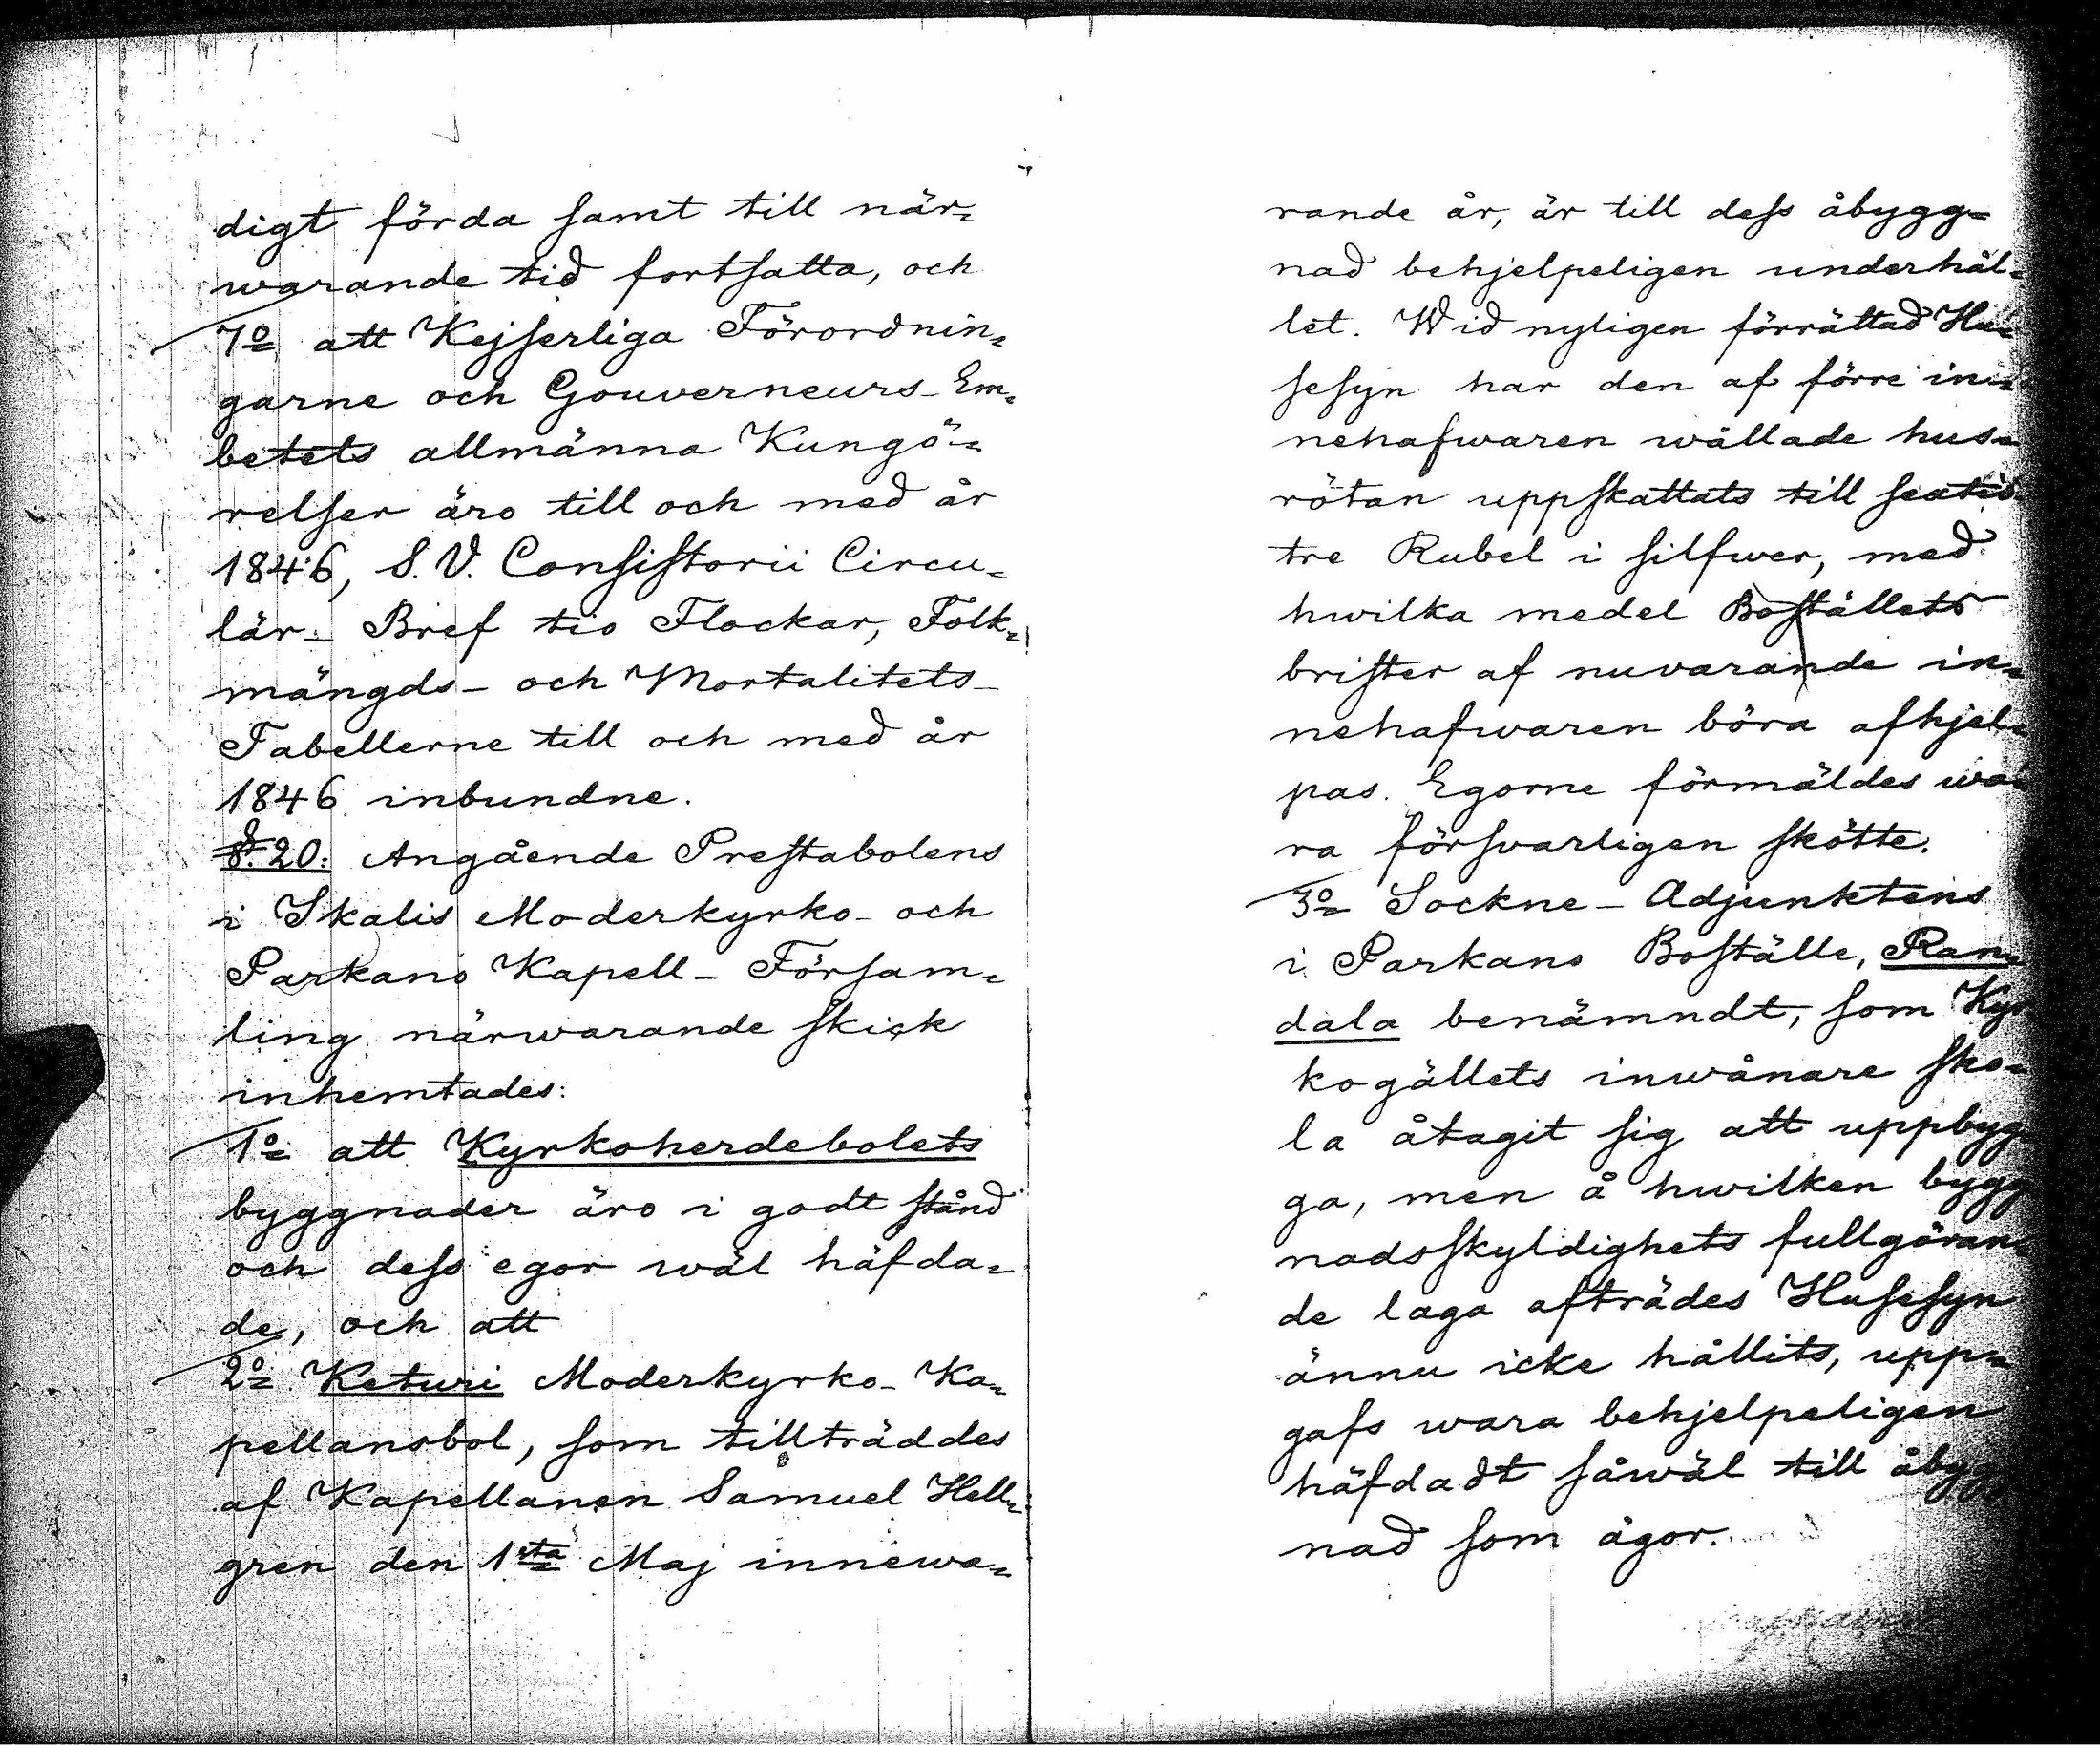 digt förda samt till när=
warande tid fortsatta, och
7o att Kejserliga Förordnin=
garne och Gouverneurs-Em=
betets allmänna Kungö=
relser äro till och med år
1846, S. V. Consistorii Circu=
lär- Bref tio Flockar, Folk=
mängds- och Mortalitets-
Tabellerne till och med år
1846 inbundne.
§. 20: Angående Prestabolens
i Ikalis Moderkyrko- och
Parkano Kapell- Försam=
ling närwarande skick
inhemtades:
1o att Kyrkoherdebolets
byggnader äro i godt stånd
och dess egor wäl häfda=
de, och att
2o Keturi Moderkyrko- Ka=
pellansbol, som tillträddes
af Kapellanen Samuel Hell=
gren den 1sta Maj innewa=
rande år, är till dess åbygg=
nad behjelpeligen underhål=
let. Wid nyligen förrättad Hu=
sesyn har den af förre in=
nehafwaren wållade hus=
rötan uppskattats till sextio
tre Rubel i silfwer, med
hwilka medel Boställets
brister af nuvarande in=
nehafwaren böra afhjel=
pas. Egorne förmäldes wa=
ra försvarligen skötte.
3o Sockne- Adjunktens
i Parkano Boställe, Ran=
dala benämndt, som Kyr
kogällets inwånare sko=
la åtagit sig att uppbyg
ga, men å hwilken bygg
nadsskyldighets fullgöran=
de laga afträdes Husesyn
ännu icke hållits, upp=
gafs wara behjelpeligen
häfdadt såwäl till åbygg
nad som ägor.